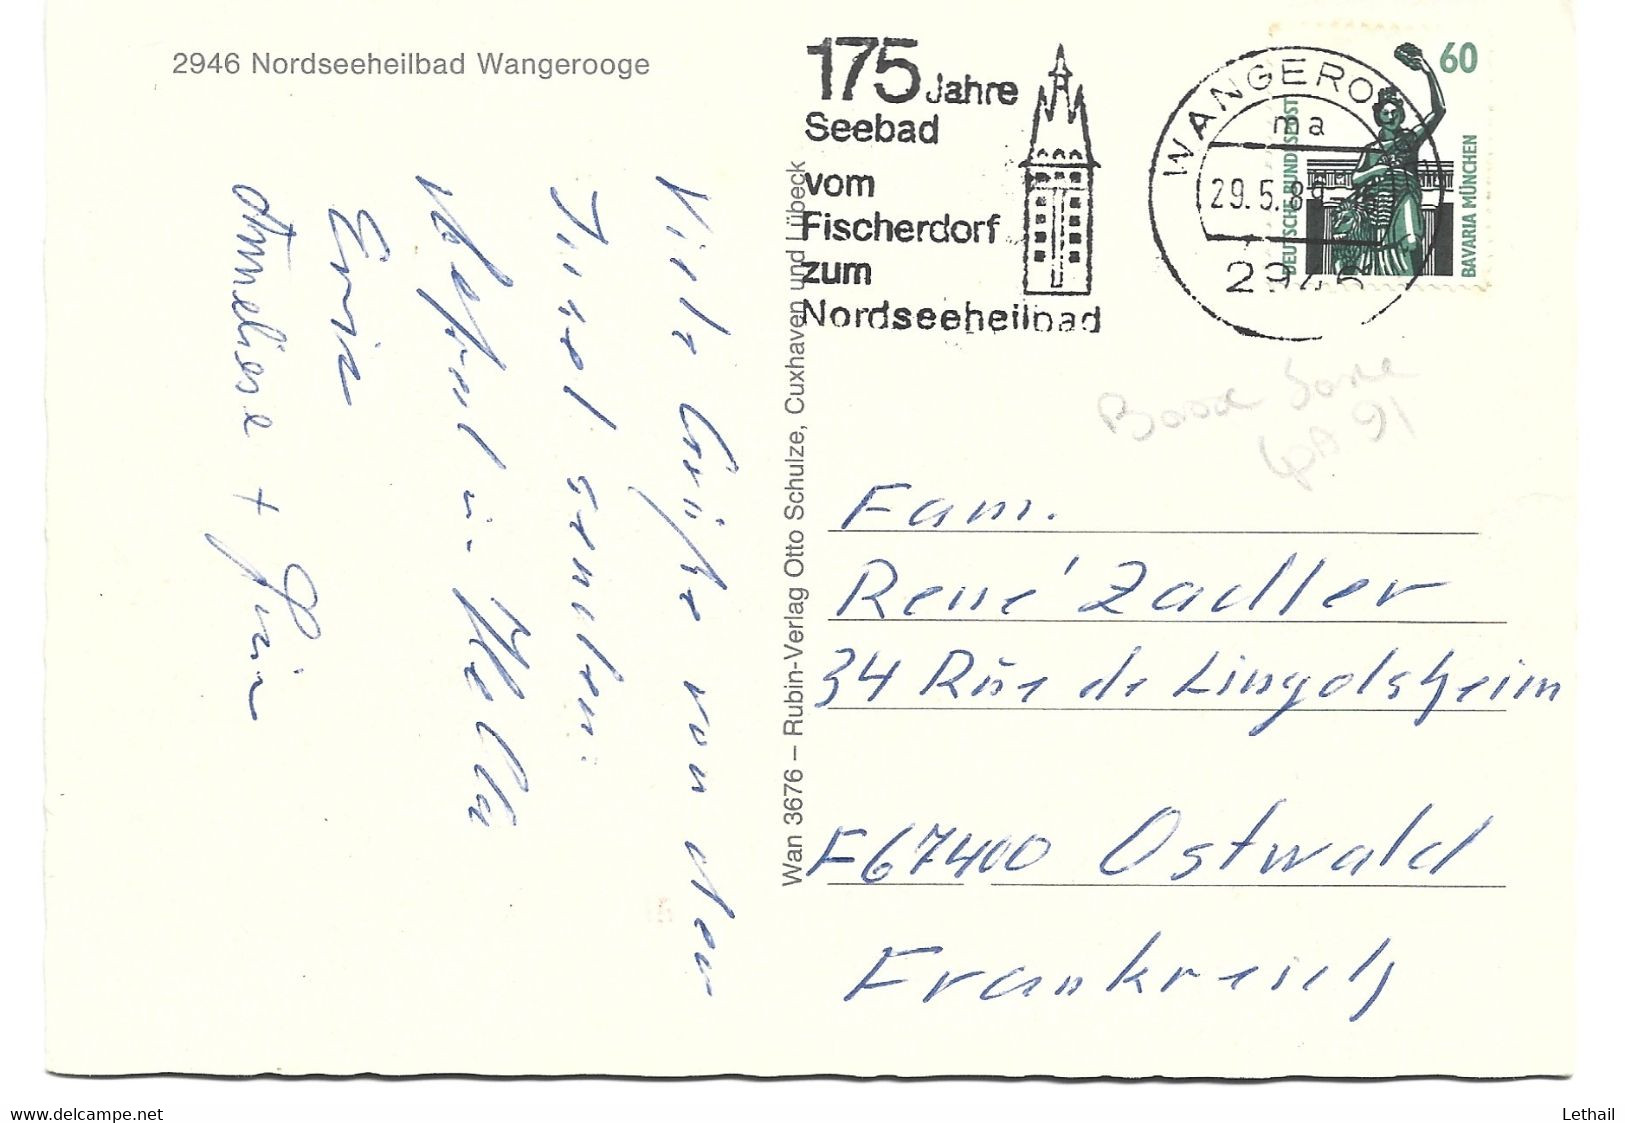 2946 Nordseeheilbad Wangerooge
175 Jahre
Seebad
vom
Fischerdorf
zum
Nordseeheilbad
WANGEROO
ma
29.5.89
2946
60
DEUTSCHE BUNDESPOST
BAVARIA MÜNCHEN
Viele Grüße von der
Insel senden:
in
Anneliese +
Wan 3676 – Rubin-Verlag Otto Schulze, Cuxhaven und Lübeck
91
Fam.
René Zadler
34 Rue de Lingolsheim
F67400 Ostwald
Frankreich
www.delcampe.net
Lethail